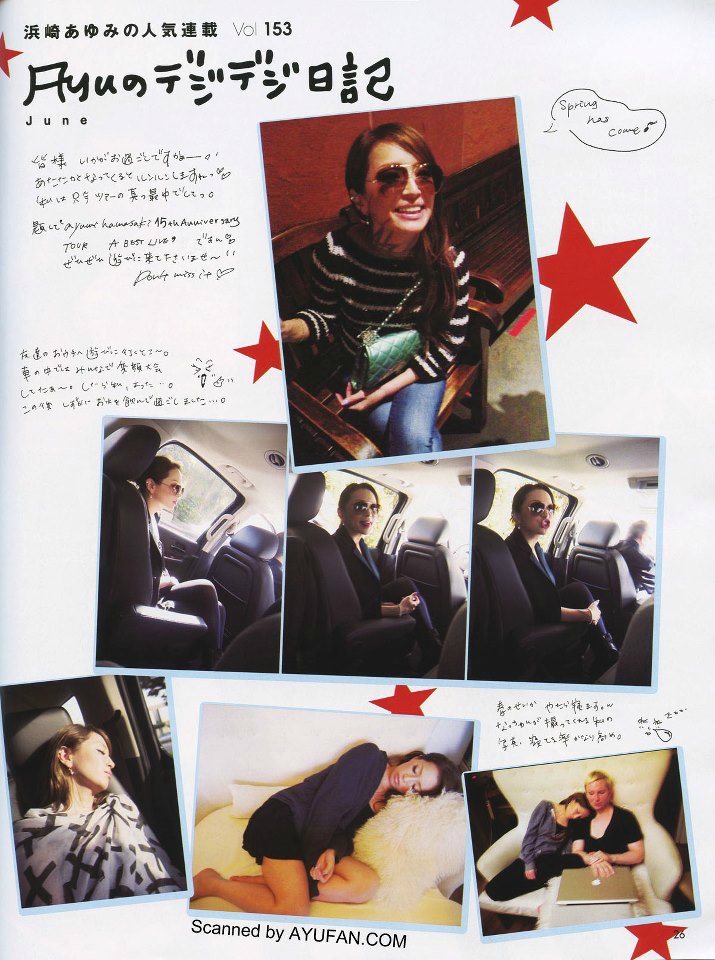 浜崎あゆみの人気連載 Vol 153
Ayuのデジデジ日記
June
Spring
has
come♪
皆様 いかがお過ごしですかー
あたたかくなってくるとルンルンしますねっ♡
私は只今ツアーの真っ最中でしてっ。
題して ayumi hamasaki 15th Anniversary
TOUR A BEST LIVE
ぜひぜひ遊びに来てくださいませ〜!!
Don't miss it♡
友達のおウチへ遊びに行くとこ〜。
車の中では みんなで 変顔大会
してたぁ〜。
この後 しずかに お水を飲んで過ごしました…。
春のせいか やたら寝ます。
なっちゃんが撮ってくれる私の
写真、寝てる率がかなり高め。
Scanned by AYUFAN.COM
26